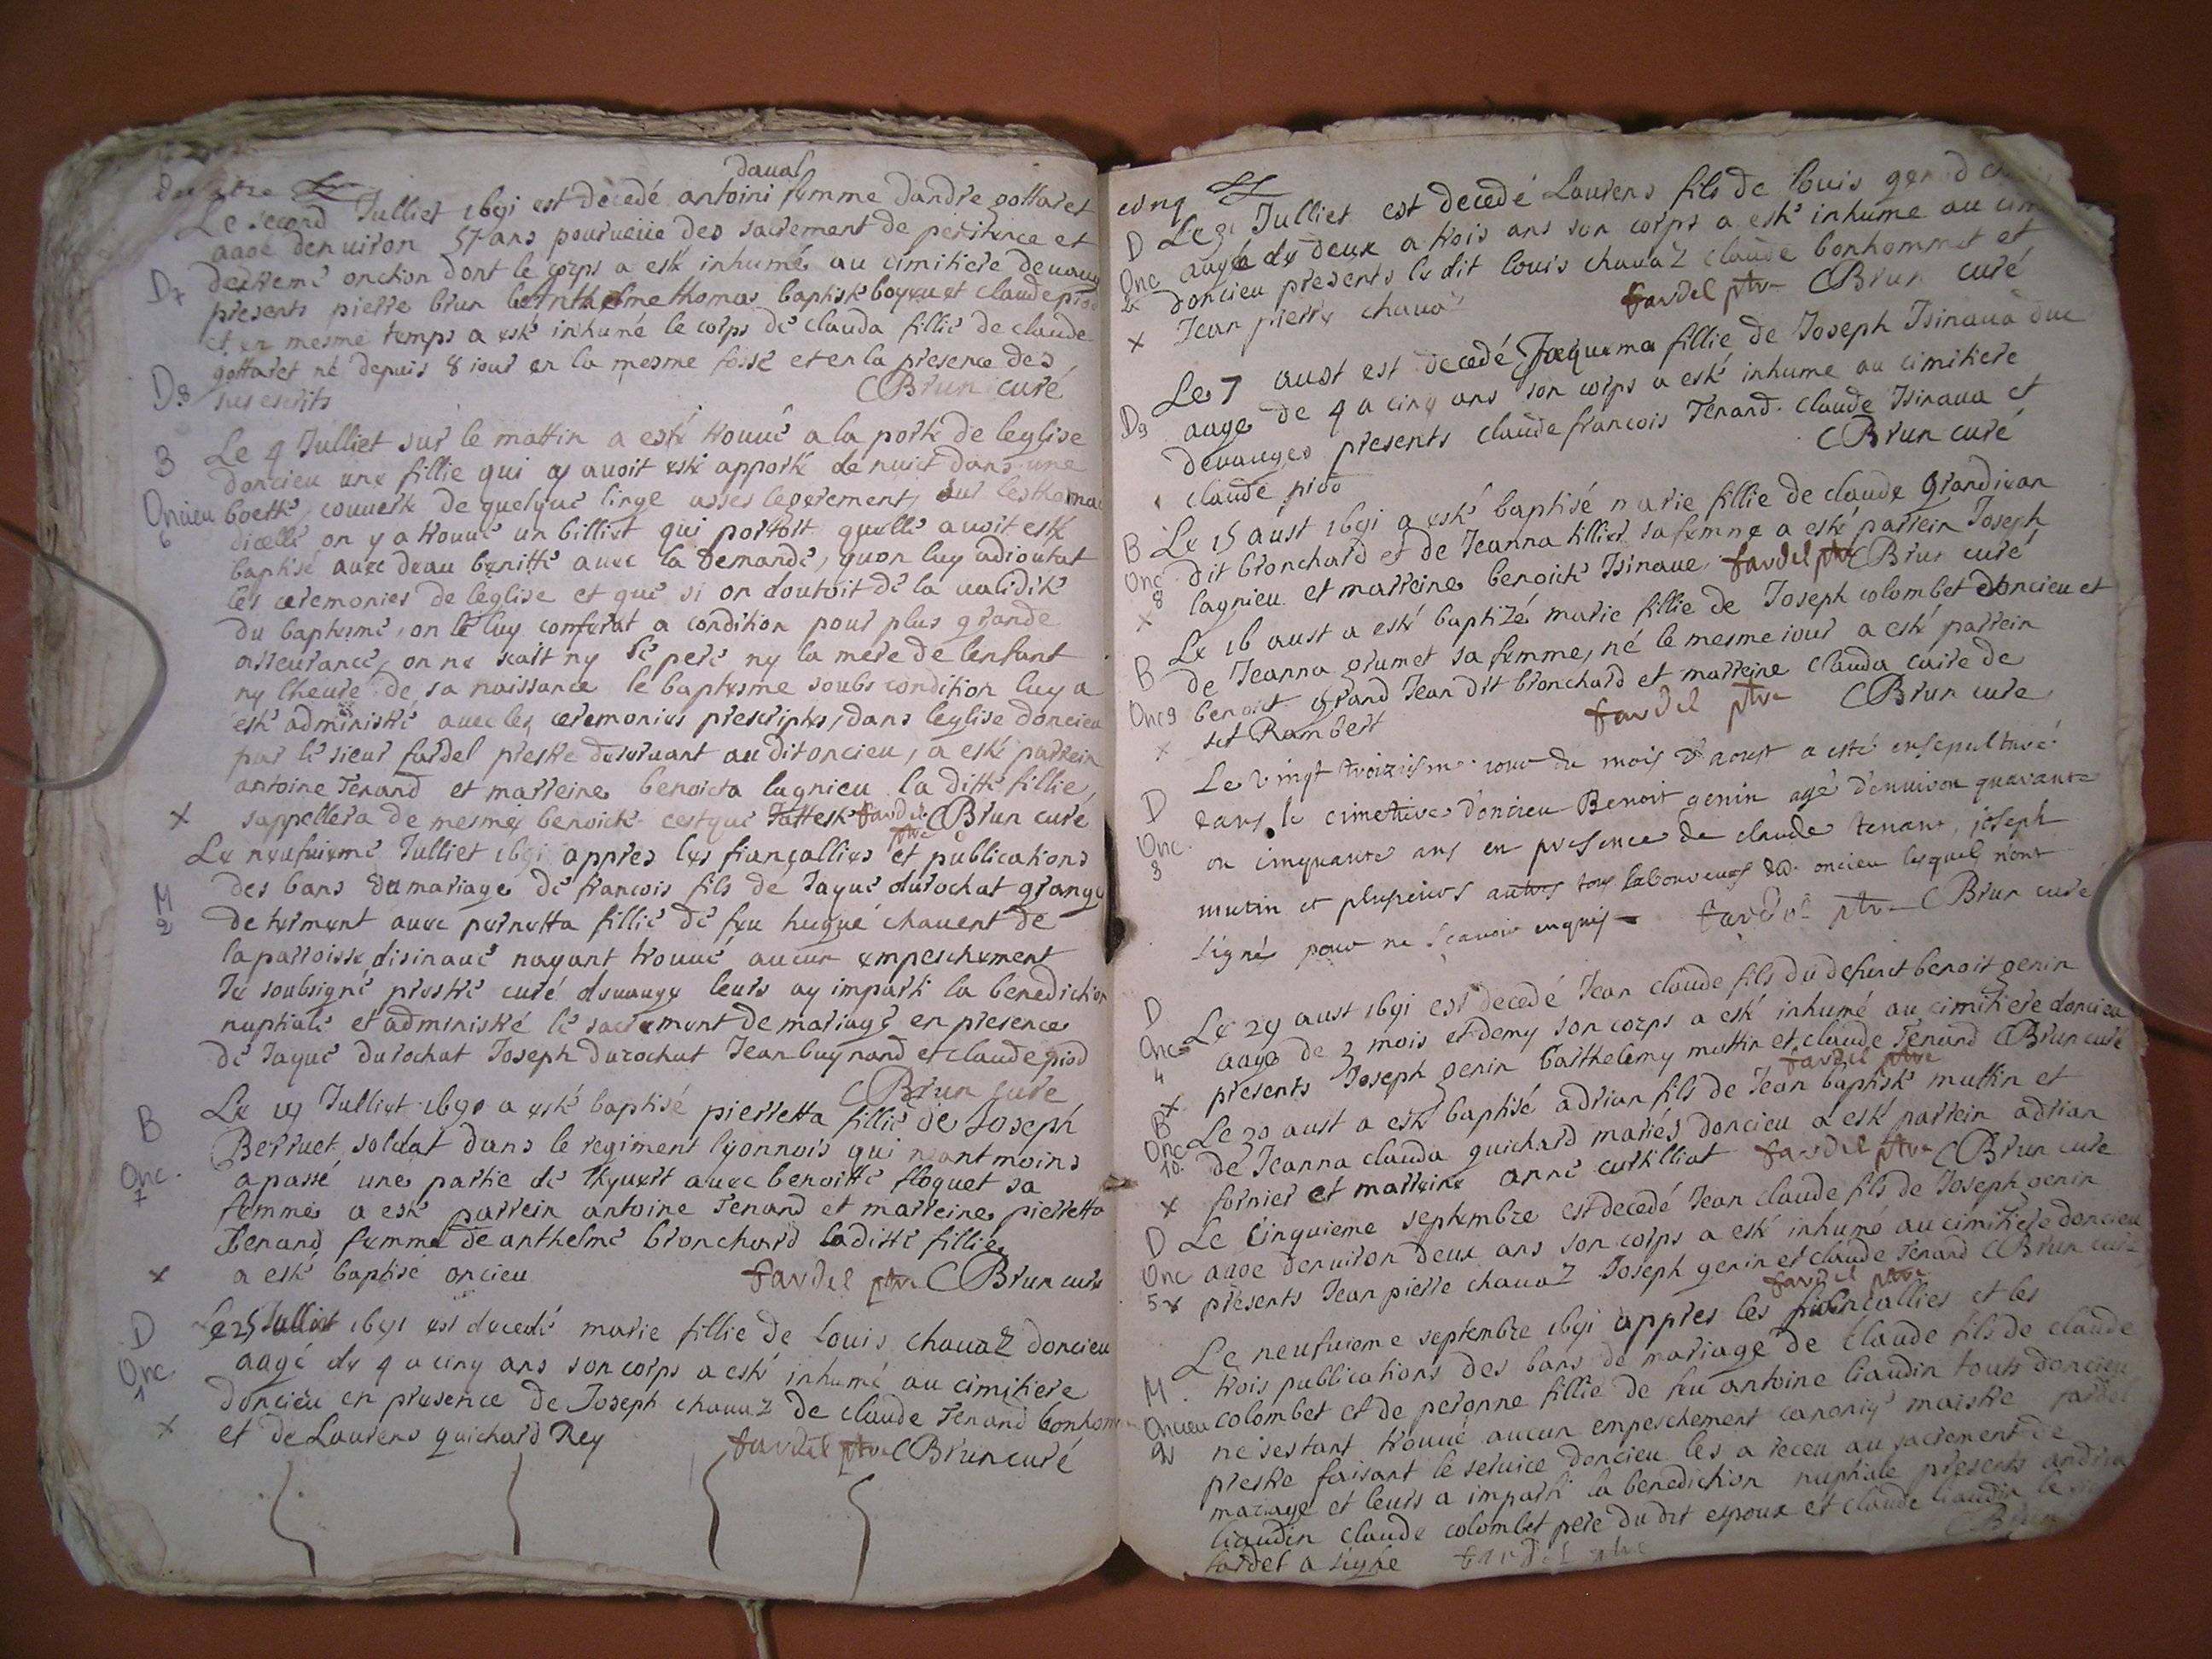 daval
Le second Julliet 1691 est decedé antoini femme dandre gottaret
aagé denuiron 57 ans pourueüe des sacrement de penitence et
D7 dextreme onction dont le corps a esté inhumé au cimitiere deuauges
presents pierre brun thomas baptiste et claude piod
et en mesme temps a esté inhumé le corps de clauda fillie de claude
gottaret né depuis 8 iour en la mesme fosse et en la presence des
D8 sus escrits CBrun curé
B Le 4 Julliet sur le mattin a esté trouué a la porte de leglise
doncieu une fillie qui y auoit esté apporté de nuict dans une
Oncieu boette couuerte de quelque linge asses legerement, sur lesthomac
6 dicelle on y a trouué un billiet qui portoit quelle auoit esté
baptisé auec deau benitte auec la demande, quon luy adioutat
les ceremonies de leglise et que si on doutoit de la ualidité
du baptesme, on le luy conferat a condition pour plus grande
asseurance, on ne scait ny le pere ny la mere de lenfant
ny lheure de sa naissance le baptesme soubs condition luy a
esté administré auec les ceremonies prescriptes, dans leglise doncieu
par le sieur fardel prestre deseruant au dit oncieu, a esté parrein
antoine Tenand et marreine benoicta lagnieu la ditte fillie,
x sappellera de mesme benoicte cest que Jatteste fardel ptre CBrun curé
Le neufuieme Julliet 1691 appres les fiançallies et publications
M des bans du mariage de francois fils de Jaque durochat grange
2 de terment auec pernetta fillie de feu hugue chauent de
la parroisse disinaue nayant trouué aucun empeschement
Je soubsigné prestre curé deuauges leurs ay imparti la benediction
nuptiale et administré le sacrement de mariage en presence
de Jaque durochat Joseph durochat Jean buynand et claude piod
CBrun cure
B Le 19 Julliet 1690 a esté baptisé pierretta fillie de Joseph
Berruet soldat dans le regiment lyonnois qui neantmoins
Onc. a passé une partie de lhyuert auec benoitte floquet sa
7 femme a esté parrein antoine Tenand et marreine pierretta
Tenand femme de anthelme bronchard laditte fillie
x a esté baptisé oncieu fardel ptre CBrun cure
D Le 25 Julliet 1691 est decedé marie fillie de louis chauaz doncieu
Onc. aagé de 4 a cinq ans son corps a esté inhumé au cimitiere
1 doncieu en presence de Joseph chauaz de claude Tenand bonhome
x et de Laurens guichard Rey fardel ptre CBrun curé
cinq
D Le 31 Julliet est decedé Laurens fils de louis
Onc aagé de deux a trois ans son corps a esté inhume au
2 doncieu presents le dit louis chauaz claude bonhommet et
x Jean pierre chauaz fardel ptre CBrun curé
Le 7 aust est decedé Jaquema fillie de Joseph Isinaua
D9 aage de 4 a cinq ans son corps a esté inhume au cimitiere
deuauges presents claude francois Tenand claude Isinaua et
claude piod CBrun curé
B Le 15 aust 1691 a esté baptisé marie fillie de claude Grandiean
Onc dit bronchard et de Jeanna tillier sa femme a esté parrein Joseph
8 lagnieu et marreine benoicte Isinaue fardel ptre CBrun curé
x
B Le 16 aust a esté baptizé marie fillie de Joseph colombet doncieu et
de Jeanna grumet sa femme, né le mesme iour a esté parrein
Onc 9 benoict grand Jean dit bronchard et marreine clauda caire de
x st Rambert fardel ptre CBrun cure
Le vingt troizieme iour du mois d'aoust a esté ensepulturé
D dans le cimettiere d'oncieu Benoit genin agé d'enuiron quarante
Onc. ou cinquante ans en presence de claude tenant, joseph
3 mutin et plusieurs autres tous laboureurs oncieu lesquels n'ont
signé pour ne scavoir enquis fardel ptre CBrun curé
D Le 29 aust 1691 est decedé Jean claude fils du defunct benoit genin
Onc aagé de 3 mois et demy son corps a esté inhumé au cimitiere doncieu
4 presents Joseph genin barthelemy muttin et claude Tenand CBrun curé
x fardel ptre
B Le 30 aust a esté baptisé adrian fils de Jean baptiste muttin et
Onc 10 de Jeanna clauda guichard mariés doncieu a esté parrein adrian
x fornier et marreine anne curtilliat fardel ptre CBrun cure
D Le cinquieme septembre est decedé Jean claude fils de Joseph genin
Onc aagé denuiron deux ans son corps a esté inhumé au cimitiere doncieu
5 x presents Jean pierre chauaz Joseph genin et claude Tenand CBrun curé
fardel ptre
Le neufuieme septembre 1691 appres les fiancallies et les
M. trois publications des bans de mariage de claude fils de claude
Oncieu colombet et de peronne fillie de feu antoine liaudin touts doncieu
2 ne sestant trouué aucun empeschement canoniq maistre fardel
prestre faisant le seruice doncieu les a receu au sacrement de
mariage et leurs a imparti la benediction nuptiale presents
liaudin claude colombet pere du dit espoux et claude liaudin le
fardel a signé fardel ptre CBrun